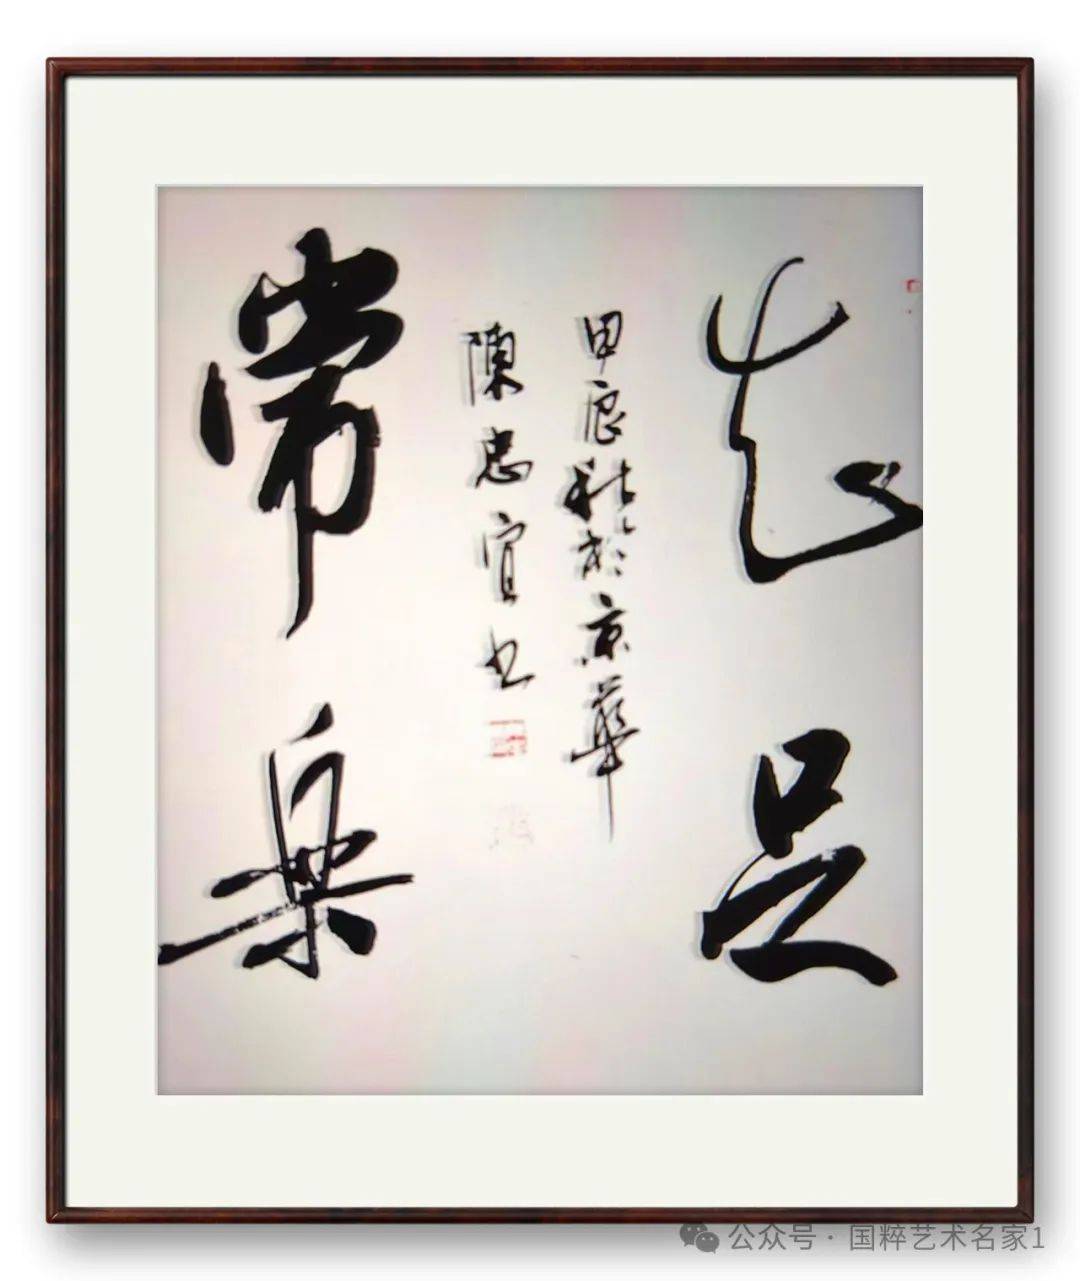 知足
甲辰秋於京華
陳忠宜书
常樂
公众号 · 国粹艺术名家1